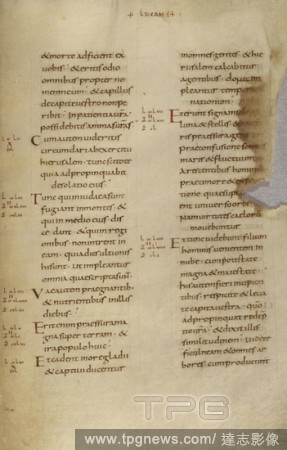 + LUCAM
& morte adficient ex
uobis · & eritis odio
omnibus propter no
men meum · & capillus
de capite uestro non pe
ribit · In patientia ura
possidebitis animas uras ·
Cum autem uideritis
circumdari ab exercitu
hierusalem · tunc scitote
quia adpropinquabit
desolatio eius ·
Tunc qui in iudaea sunt
fugiant in montes · &
qui in medio eius dis
cedant · & qui in regi
onibus · non intrent in
eam · quia dies ultionis
hi sunt · ut impleantur
omnia quae scripta sunt ·
Vae autem praegnantib ·
& nutrientibus in illis
diebus ·
Erit enim praessura ma
gna super terram · &
ira populo huic ·
Et cadent in ore gladii
& captiui ducentur
in omnes gentes · & hie
rusalem calcabitur
a gentibus · donec im
pleantur tempora
nationum ·
Et erunt signa in sole &
luna & stellis · & in ter
ris praessura gentium
prae confusione soni
maris & fluctuum ·
arescentibus hominib ·
prae timore & expec
tatione quae superueni
ent uniuerso orbi ·
nam uirtutes caelorum
mouebuntur
Et tunc uidebunt filium
hominis uenientem in
nube · cum potestate
magna & maiestate ·
his autem fieri incipien
tibus · respicite & leua
te capita uestra · quo
adpropinquat redemp
tio · & dixit illis
similitudinem · Videte
ficulneam & omnes ar
bores · cum producunt
TPG
www.tpgnews.com / 達志影像